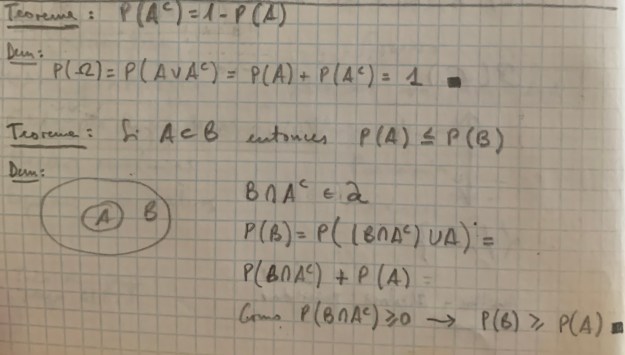 Teorema: P(Aᶜ)=1-P(A)
Dem:
P(Ω)= P(A∪Aᶜ) = P(A)+P(Aᶜ)= 1 ■
Teorema: Si A⊂B entonces P(A) ≤ P(B)
Dem:
A B
B∩Aᶜ ∈ 𝒜
P(B)= P((B∩Aᶜ)∪A) =
P(B∩Aᶜ) + P(A) =
Como P(B∩Aᶜ)≥0 → P(B) ≥ P(A) ■